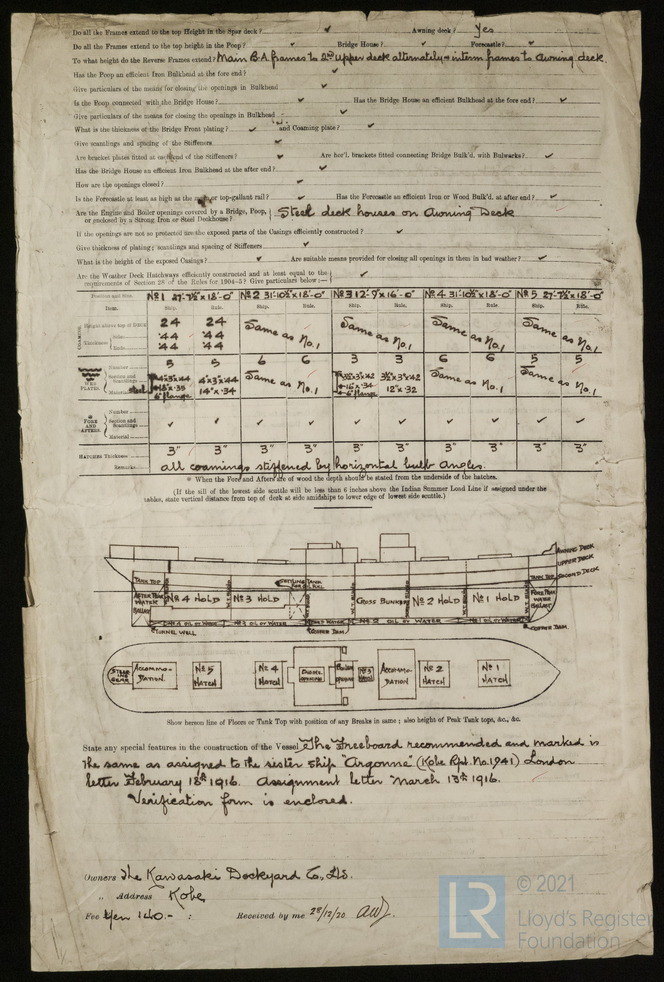 Do all the Frames extend to the top Height in the Spar deck? ✓ Awning deck? Yes
Do all the Frames extend to the top height in the Poop? ✓ Bridge House? ✓ Forecastle? ✓
To what height do the Reverse Frames extend? Main B.A. frames to 2nd upper deck alternately & interm frames to Awning deck.
Has the Poop an efficient Iron Bulkhead at the fore end? ✓
Give particulars of the means for closing the openings in Bulkhead ✓
Is the Poop connected with the Bridge House? ✓ Has the Bridge House an efficient Bulkhead at the fore end? ✓
Give particulars of the means for closing the openings in Bulkhead ✓
What is the thickness of the Bridge Front plating? ✓ and Coaming plate? ✓
Give scantlings and spacing of the Stiffeners ✓
Are bracket plates fitted at each end of the Stiffeners? ✓ Are hor'l. brackets fitted connecting Bridge Bulk'd. with Bulwarks? ✓
Has the Bridge House an efficient Iron Bulkhead at the after end? ✓
How are the openings closed? ✓
Is the Forecastle at least as high as the main or top-gallant rail? ✓ Has the Forecastle an efficient Iron or Wood Bulk'd. at after end? ✓
Are the Engine and Boiler openings covered by a Bridge, Poop, or enclosed by a Strong Iron or Steel Deckhouse? Steel deck houses on Awning Deck
If the openings are not so protected are the exposed parts of the Casings efficiently constructed? ✓
Give thickness of plating; scantlings and spacing of Stiffeners ✓
What is the height of the exposed Casings? ✓ Are suitable means provided for closing all openings in them in bad weather? ✓
Are the Weather Deck Hatchways efficiently constructed and at least equal to the
requirements of Section 28 of the Rules for 1904-5? Give particulars below:— ✓
Position and Size. No 1 27'-7½" x 18'-0" No 2 31'-10½" x 18'-0" No 3 12'-9" x 16'-0" No 4 31'-10½" x 18'-0" No 5 27'-7½" x 18'-0"
Item. Ship. Rule. Ship. Rule. Ship. Rule. Ship. Rule. Ship. Rule.
COAMING. Height above top of DECK 24 24 Same as No. 1 Same as No. 1 Same as No. 1 Same as No. 1
Thickness Sides .44 .44
Ends .44 .44
WEB PLATES. Number 5 5 6 6 3 3 6 6 5 5
Section and Scantlings 4x3x.44 4x3x.44 Same as No. 1 3½x3x.42 3½x3x.42 Same as No. 1 Same as No. 1
Material steel 18"x.35 14"x.34 16"x.34 12"x.32
6" flange 6" flange
FORE AND AFTERS. Number
Section and Scantlings ✓ ✓ ✓ ✓ ✓ ✓ ✓ ✓ ✓ ✓
Material
HATCHES Thickness 3" 3" 3" 3" 3" 3" 3" 3" 3" 3"
Remarks all coamings stiffened by horizontal bulb angles.
* When the Fore and Afters are of wood the depth should be stated from the underside of the hatches.
(If the sill of the lowest side scuttle will be less than 6 inches above the Indian Summer Load Line if assigned under the
tables, state vertical distance from top of deck at side amidships to lower edge of lowest side scuttle.)
AWNING DECK
UPPER DECK
SECOND DECK
TANK TOP SETTLING TANK FOR OIL FUEL TANK TOP
AFTER PEAK WATER BALLAST No 4 HOLD No 3 HOLD CROSS BUNKER No 2 HOLD No 1 HOLD FORE PEAK WATER BALLAST
No 4 OIL OR WATER No 3 OIL OR WATER FEED WATER No 2 OIL OR WATER No 1 OIL OR WATER
TUNNEL WELL COFFER DAM COFFER DAM
STEERING GEAR ACCOMMODATION. No 5 HATCH No 4 HATCH ENGINE OPENING BOILER OPENING No 3 HATCH ACCOMMODATION. No 2 HATCH No 1 HATCH
Show hereon line of Floors or Tank Top with position of any Breaks in same; also height of Peak Tank tops, &c., &c.
State any special features in the construction of the Vessel The Freeboard recommended and marked is
the same as assigned to the sister ship "Argonne" (Kobe Rpt. No. 1941) London
letter February 18th 1916. Assignment letter March 13th 1916.
Verification form is enclosed.
Owners The Kawasaki Dockyard Co., Ltd.
" Address Kobe
Fee Yen 140.- : Received by me 28/12/20
LR © 2021
Lloyd's Register
Foundation